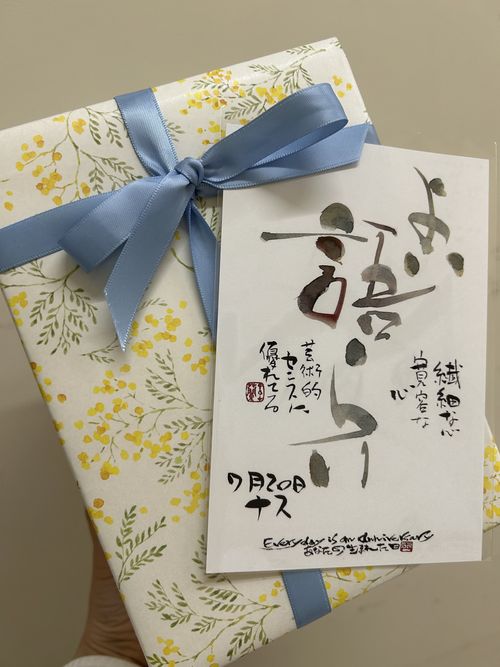 語らい
繊細な心
寛容な
心
芸術的
センスに
優れてる
7月20日
ナス
Everyday is an Anniversary
あなたの生まれた日